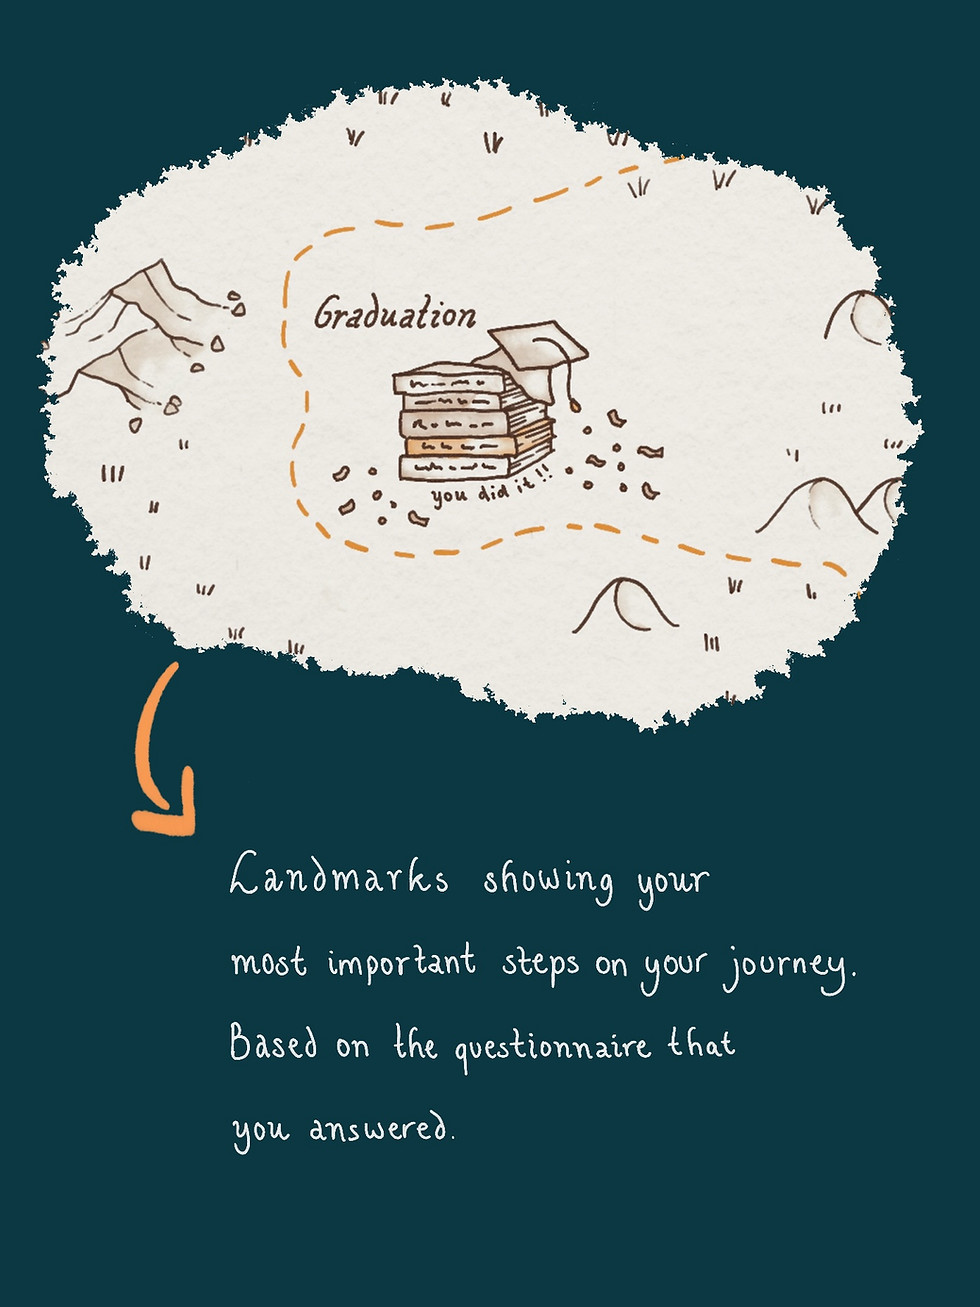 Graduation
you did it!!
Landmarks showing your
most important steps on your journey.
Based on the questionnaire that
you answered.